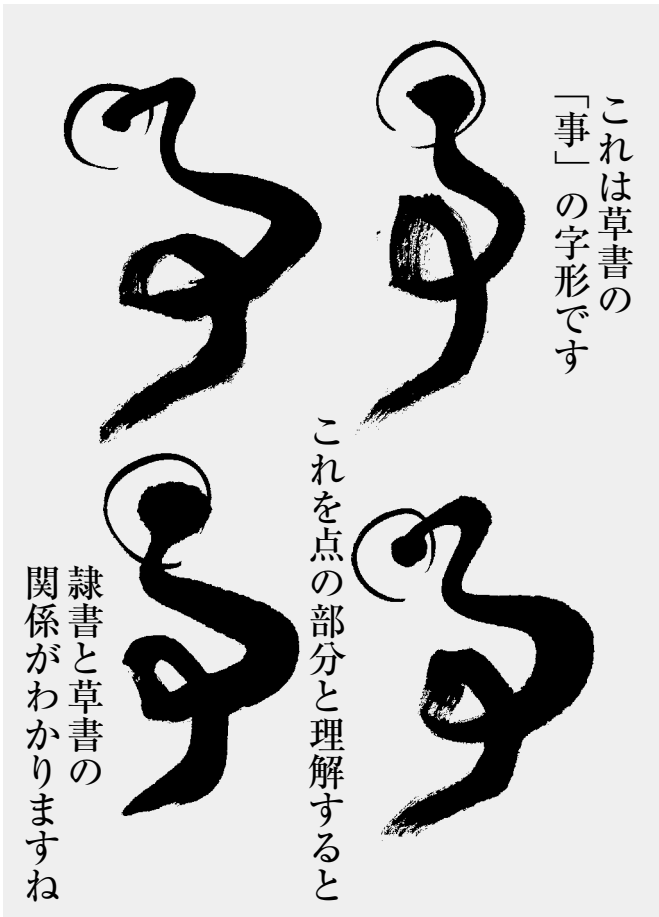 これは草書の
「事」の字形です
これを点の部分と理解すると
隷書と草書の
関係がわかりますね
事
事
事
事